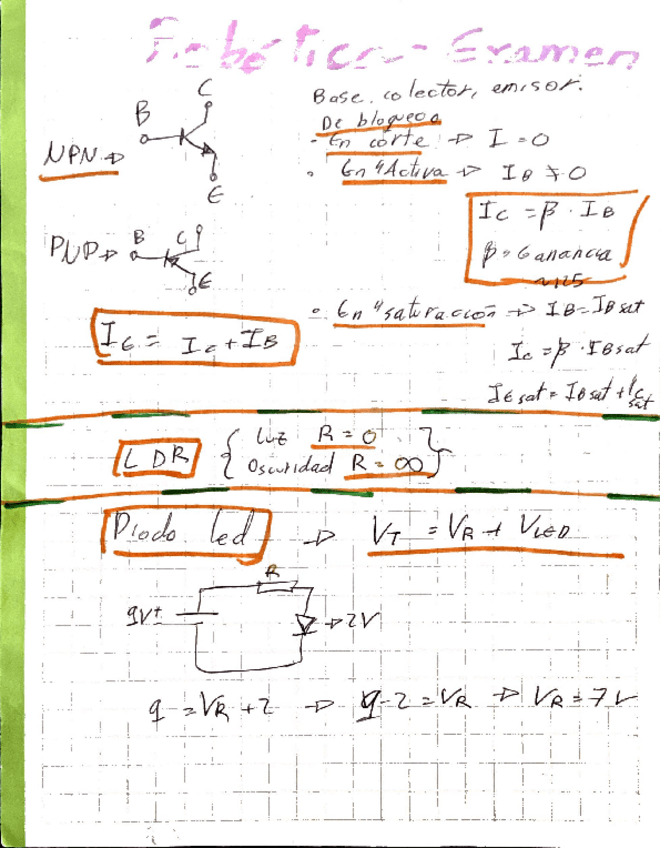 Robótica - Examen
Base, colector, emisor.
De bloqueo o
- En corte → I = 0
NPN →
B
C
E
• En "Activa → IB ≠ 0
IC = β · IB
β → Ganancia
~125
PNP →
B
C
E
• En "saturación → IB = IB sat
IE = IC + IB
Ic = β · IB sat
IE sat = IB sat + Ic sat
LDR { Luz R = 0
Oscuridad R = ∞ }
Diodo led → VT = VR + VLED
R
9V +
→ 2V
9 = VR + 2 → 9 - 2 = VR → VR = 7 V